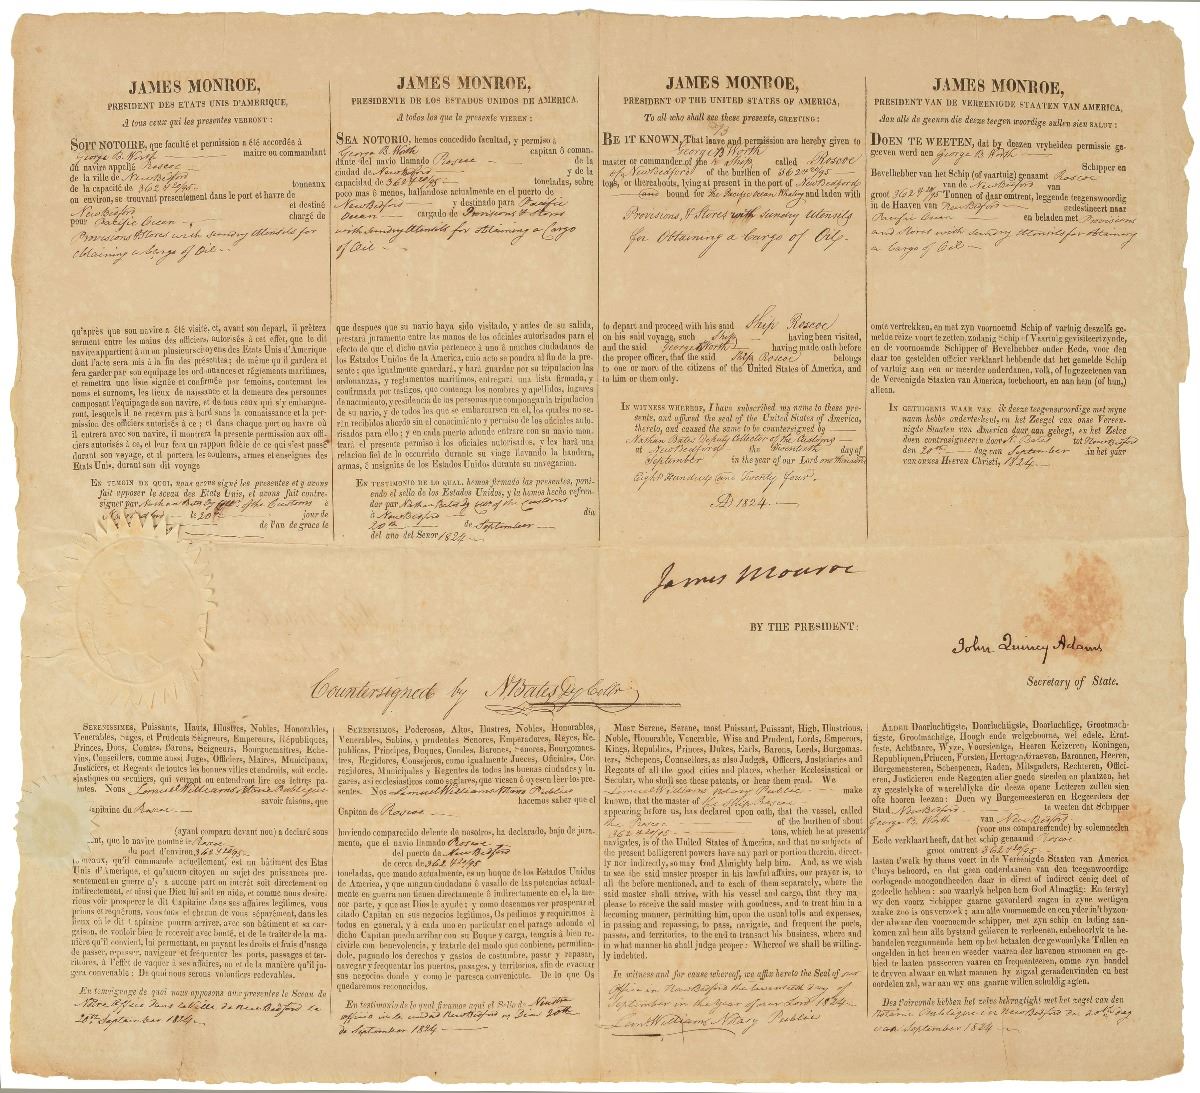 JAMES MONROE,
PRESIDENT DES ETATS UNIS D'AMERIQUE,
A tous ceux qui les presentes VERRONT :
SOIT NOTOIRE, que faculté et permission a été accordée à
George B. Worth maitre ou commandant
du navire appellé Roscoe
de la ville de New Bedford
de la capacité de 362 42/95 tonneaux
ou environ, se trouvant presentement dans le port et havre de
New Bedford et destiné
pour Pacific Ocean chargé de
Provisions & Stores with Sundry Utensils for
obtaining a Cargo of Oil
qu'après que son navire a été visité, et, avant son depart, il prêtera
serment entre les mains des officiers, autorisés à cet effet, que le dit
navire appartient à un ou plusieurs citoyens des Etats Unis d'Amerique
dont l'acte sera mis à la fin des présentes; de même qu'il gardera et
fera garder par son equipage les ordonnances et réglements maritimes,
et remettra une liste signée et confirmée par temoins, contenant les
noms et surnoms, les lieux de naissance et la demeure des personnes
composant l'equipage de son navire, et de tous ceux qui s'y embarque-
ront, lesquels il ne recevra pas à bord sans la connaissance et la per-
mission des officiers autorisés à ce; et dans chaque port ou havre où
il entrera avec son navire, il montrera la presente permission aux offi-
ciers autorisés à ce, et leur fera rapport fidèle de ce qui s'est passé
durant son voyage, et il portera les couleurs, armes et enseignes des
Etats Unis, durant son dit voyage
EN TEMOIN DE QUOI, nous avons signé les presentes et y avons
fait apposer le sceau des Etats Unis, et avons fait contre-
signer par Nathan Bates Dy Coll. of the Customs à
New Bedford le 20th jour de
de l'an de grace le
JAMES MONROE,
PRESIDENTE DE LOS ESTADOS UNIDOS DE AMERICA,
A todos los que la presente VIEREN :
SEA NOTORIO, hemos concedido facultad, y permiso á
George B. Worth capitan ó coman-
dante del navio llamado Roscoe de la
ciudad de New Bedford y de la
capacidad de 362 42/95 toneladas, sobre
poco mas ó menos, hallandose actualmente en el puerto de
New Bedford y destinado para Pacific
Ocean cargado de Provisions & Stores
with Sundry Utensils for Obtaining a Cargo
of Oil
que despues que su navio haya sido visitado, y antes de su salida,
prestará juramento entre las manos de los oficiales autorizados para el
efecto de que el dicho navio pertenece à uno ó muchos ciudadanos de
los Estados Unidos de la America, cuio acto se pondra al fin de la pre-
sente: que igualmente guardará, y hará guardar por su tripulacion las
ordonanzas, y reglamentos maritimos, entregará una lista firmada, y
confirmada por testigos, que contenga los nombres y apellidos, lugares
de nacimiento, y residencia de las personas que compongan la tripulacion
de su navio, y de todos los que se embarcasen en el, los quales no se-
rin recibidos abordo sin el conocimiento y permiso de los oficiales auto-
risados para ello; y en cada puerto adonde entrare con su navio mon-
trará el presente permiso á los oficiales autorisados, y les hará una
relacion fiel de lo occurrido durante su viage llevando la bandera,
armas, é insignias de los Estados Unidos durante su navegacion.
EN TESTIMONIO DE LO QUAL, hemos firmado las presentes, poni-
endo el sello de los Estados Unidos, y la hemos hecho refren-
dar par Nathan Bates Dy Coll. of the Customs
à New Bedford dia
20th de September
del ano del Senor 1824
JAMES MONROE,
PRESIDENT OF THE UNITED STATES OF AMERICA,
To all who shall see these presents, GREETING :
BE IT KNOWN, That leave and permission are hereby given to
George B Worth
master or commander of the Ship called Roscoe
of New Bedford of the burthen of 362 42/95
tons, or thereabouts, lying at present in the port of New Bedford
and bound for the Pacific Ocean Whaling and laden with
Provisions, & Stores with Sundry Utensils
for Obtaining a Cargo of Oil
to depart and proceed with his said Ship Roscoe
on his said voyage, such Ship having been visited,
and the said George Worth having made oath before
the proper officer, that the said Ship Roscoe belongs
to one or more of the citizens of the United States of America, and
to him or them only.
IN WITNESS WHEREOF, I have subscribed my name to these pre-
sents, and affixed the seal of the United States of America,
thereto, and caused the same to be countersigned by
Nathan Bates Deputy Collector of the Customs
at New Bedford the Twentieth day of
September in the year of our Lord one thousand
Eight Hundred and Twenty Four.
AD 1824
JAMES MONROE,
PRESIDENT VAN DE VEREENIGDE STAATEN VAN AMERICA,
Aan alle de geenen die deeze teegen woordige sullen sien SALUT :
DOEN TE WEETEN, dat by deezen vryheiden permissie ge-
geeven werd aen George B. Worth
Schipper en
Bevelhebber van Het Schip (of vaartuig) genaamt Roscoe
van de New Bedford van
groot 362 42/95 Tonnen of daar omtrent, leggende teegenswoordig
in de Haaven van New Bedford gedestineert naar
Pacific Ocean en beladen met Provisions
and Stores with Sundry Utensils for obtaining
a Cargo of Oil
omte vertrekken, en met zyn voornoemd Schip of vartuig deszelfs ge-
melde reize voort te zetten, zodanig Schip of Vaartuig gevisiteert zynde,
en de voornoemde Schipper of Bevelhebber onder Eede, voor den
daar toe gestelden officier verklaart hebbende dat het gemelde Schip
of vartuig aan een or meerder onderdanen, volk, of Ingezeetenen van
de Vereenigde Staaten van America, toebehoort, en aan hem (of hun,)
alleen.
IN GETUIGENIS WAAR VAN ik deeze teegenswoordige met myne
naam hebbe ondertekent, en het Zeegel van onse Vereen-
nigde Staaten van America daar aan gehegt, en het Zelve
doen contrasigneeren door N. Bates tot New Bedford
den 20th dag van September in het year
van onzes Heeren Christi, 1824
James Monroe
BY THE PRESIDENT:
John Quincy Adams
Secretary of State.
Countersigned by N Bates Dy Collr
SERENISSIMES, Puissants, Hauts, Illustres, Nobles, Honorables,
Venerables, Sages, et Prudents Seigneurs, Empereurs, Républiques,
Princes, Ducs, Comtes, Barons, Seigneurs, Bourguemaitres, Eche-
vins, Conseillers, comme aussi Juges, Officiers, Maires, Municipaux,
Justiciers, et Regents de toutes les bonnes villes et endroits, soit eccle-
siastiques ou seculiers, qui verront ou entendront lire ces lettres pa-
tentes. Nous Lemuel Williams Notaire Publique
savoir faisons, que
Capitaine de Roscoe
(ayant comparu devant nou) a declaré sous
que le navire nommé le Roscoe
du port d'environ 362 42/95
tonneaux, qu'il commande actuellement, est un bâtiment des Etas
Unis d'Amerique, et qu'aucun citoyen ou sujet des puissances pre-
sentement en guerre n'y a aucune part ou interêt soit directement ou
indirectement, et ainsi que Dieu lui soit en aide, et comme nous desire-
rions voir prosperer le dit Capitaine dans ses affaires legitimes, vous
prions et requérons, vous tous et chacun de vous séparement, dans les
lieux où le dit Capitaine pourra arriver, avec son bâtiment et sa car-
gaison, de vouloir bien le recevoir avec bonté, et de le traiter de la ma-
nière qu'il convient, lui permettant, en payant les droits et frais d'usage
de passer, repasser, naviguer et fréquenter les ports, passages et ter-
ritoires, à l'effet de vaquer à ses affaires, ou et de la manière qu'il ju-
gera convenable: De quoi nous serons volontiers redevables.
En temoignage de quoi nous apposons aux presentes le Sceau de
Notre Office Dans la Ville de New Bedford le
20th September 1824
SERENISIMOS, Poderosos, Altos, Ilustres, Nobles, Honorables,
Venerables, Sabios, y prudentes Senores, Emperadores, Reyes, Re-
publicas, Principes, Duques, Condes, Barones, Senores, Bourgomes-
tres, Regidores, Consejeros, como igualmente Jueces, Oficiales, Cor-
regidores, Municipales y Regentes de todos los buenas ciudades y lu-
gares, asi eclesiasticos como seglares, que viesen ó oyesen léer los pre-
sentes. Nos Lemuel Williams Notaro Publico
hacemos saber que el
Capitan de Roscoe
haviendo comparecido delente de nosotros, ha declarado, bajo de jura-
mento, que el navio llamado Roscoe
del puerto de New Bedford
de cerca de 362 42/95
toneladas, que manda actualmente, es un buque de los Estados Unidos
de America, y que ningun ciudadano ó vasallo de las potencias actual-
mente en guerra son tienen directamente ni indirectamente en el, la me-
nor parte, y que asi Dios le ayude; y como deseamos ver prosperar el
citado Capitan en sus negocios legitimos, Os pedimos y requirimos à
todos en general, y à cada uno en particular en el parage adonde el
dicho Capitan pueda arribar con su Buque y carga, tengais à bien re-
civirle con benevolencia, y tratarle del modo que combiene, permitien-
dole, pagando los derechos y gastos de costumbre, pasar y repasar,
navegar y frequentar los puertos, pasages, y territorios, afin de evacuar
los negocios donde y como le paresca conveniente. De lo que Os
quedaremos reconocidos.
En testimonio de lo qual firmamos aqui el Sello de Nuestra
oficio en la ciudad New Bedford y Dia 20th
de September 1824
MOST Serene, Serene, most Puissant, Puissant, High, Illustrious,
Noble, Honourable, Venerable, Wise and Prudent, Lords, Emperors,
Kings, Republics, Princes, Dukes, Earls, Barons, Lords, Burgomas-
ters, Schepens, Counsellors, as also Judges, Officers, Justiciaries and
Regents of all the good cities and places, whether Ecclesiastical or
Secular, who shall see these patents, or hear them read. We
Lemuel Williams Notary Public make
known, that the master of the Ship Roscoe
appearing before us, has declared upon oath, that the vessel, called
the Roscoe of the burthen of about
362 42/95 tons, which he at present
navigates, is of the United States of America, and that no subjects of
the present belligerent powers have any part or portion therein, direct-
ly nor indirectly, so may God Almighty help him. And, as we wish
to see the said master prosper in his lawful affairs, our prayer is, to
all the before mentioned, and to each of them separately, where the
said master shall arrive, with his vessel and cargo, that they may
please to receive the said master with goodness, and to treat him in a
becoming manner, permitting him, upon the usual tolls and expenses,
in passing and repassing, to pass, navigate, and frequent the ports,
passes, and territories, to the end to transact his business, where and
in what manner he shall judge proper: Whereof we shall be willing-
ly indebted.
In witness and for cause whereof, we affix hereto the Seal of our
Office in New Bedford the twentieth day of
September in the Year of our Lord 1824
Lem Williams Notary Public
ALDER Doorluchtigste, Doorluchtigste, Doorluchtige, Grootmach-
tigste, Grootmachtige, Hoogh ende welgeboorne, wel edele, Ernt-
feste, Achtbaare, Wyze, Voorsienige, Heeren Keizeren, Koningen,
Republiquen, Princen, Forsten, Hertogen, Graeven, Baronnen, Heeren,
Burgemeesteren, Schoepenen, Raden, Mitsgaders, Rechteren, Offici-
eren, Justicieren ende Regenten aller goede steeden en plaatzen, het
zy geestelyke of waereldlyke die deeze opene Letteren zullen sien
ofte hooren leezen: Doen wy Burgemeesteren en Regeerders der
Stad New Bedford te weeten dat Schipper
George B. Worth van New Bedford
(voor ons compareerende) by solemneelen
Eede verklaart heeft, dat het schip genaamd Roscoe
groot omtrent 362 42/95
lasten t'welk by thans voert in de Vereenigde Staaten van America
t'huys behoord, en dat geen onderdaanen van de teegenwoordige
oorlogende moogendheeden daar in direct of indirect eenig deel of
gedeelte hebben: soo waarlyk helpen hem God Almagtig: En terwyl
wy den voorz Schipper gaarne gevorderd zagen in zyne wettigen
zaake zoo is ons verzoek; aan alle voornoemde en een yder in't byzon-
der alwaar den voornoemde schipper, met zyn schip en lading aan-
komen zal hem als bystand gelieven te verleenen, enbehoorlyk te be-
handelen vergunnende hem op het betaalen der gewoondlyke Tollen en
ongelden in het heen en weeder vaaren der havenen stroomen en ge-
bied te laaten passeeren vaaren en frequenteeren, omme zyn handel
te dryven alwaar en wat manner hy zigzal geraadenvinden en best
oordelen zal, waar aan wy ons gaarne willen schuldig agten.
Des t'oirconde hebben het zelve bekragtight met het zegel van den
Notaris Publique in New Bedford den 20th dag
van September 1824